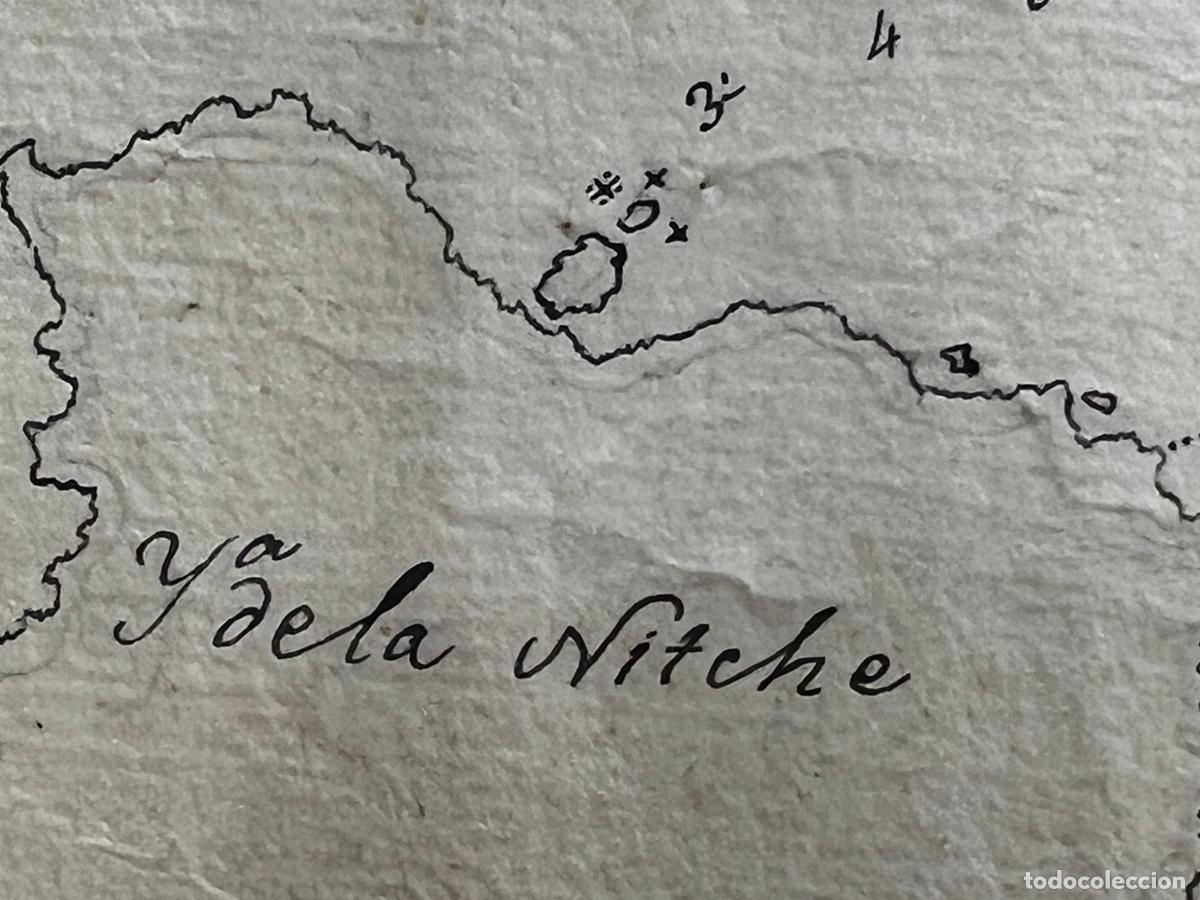 4
3½
Ya
dela Nitche
todocoleccion